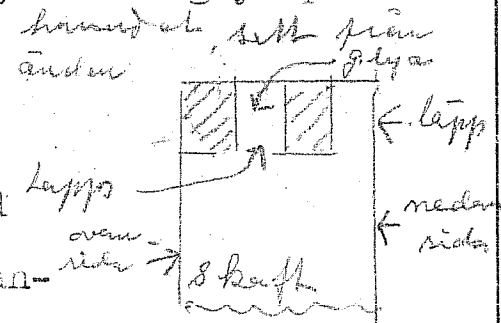 huvudet, sett från
änden
glya
läpp
Läpps
nedan
sida
ovan-
sida
skaft
an-